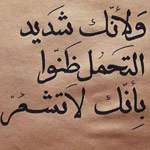 وَلأنّك شَديد
التحَمل ظَنّوا
بأنّك لاتشعُرْ